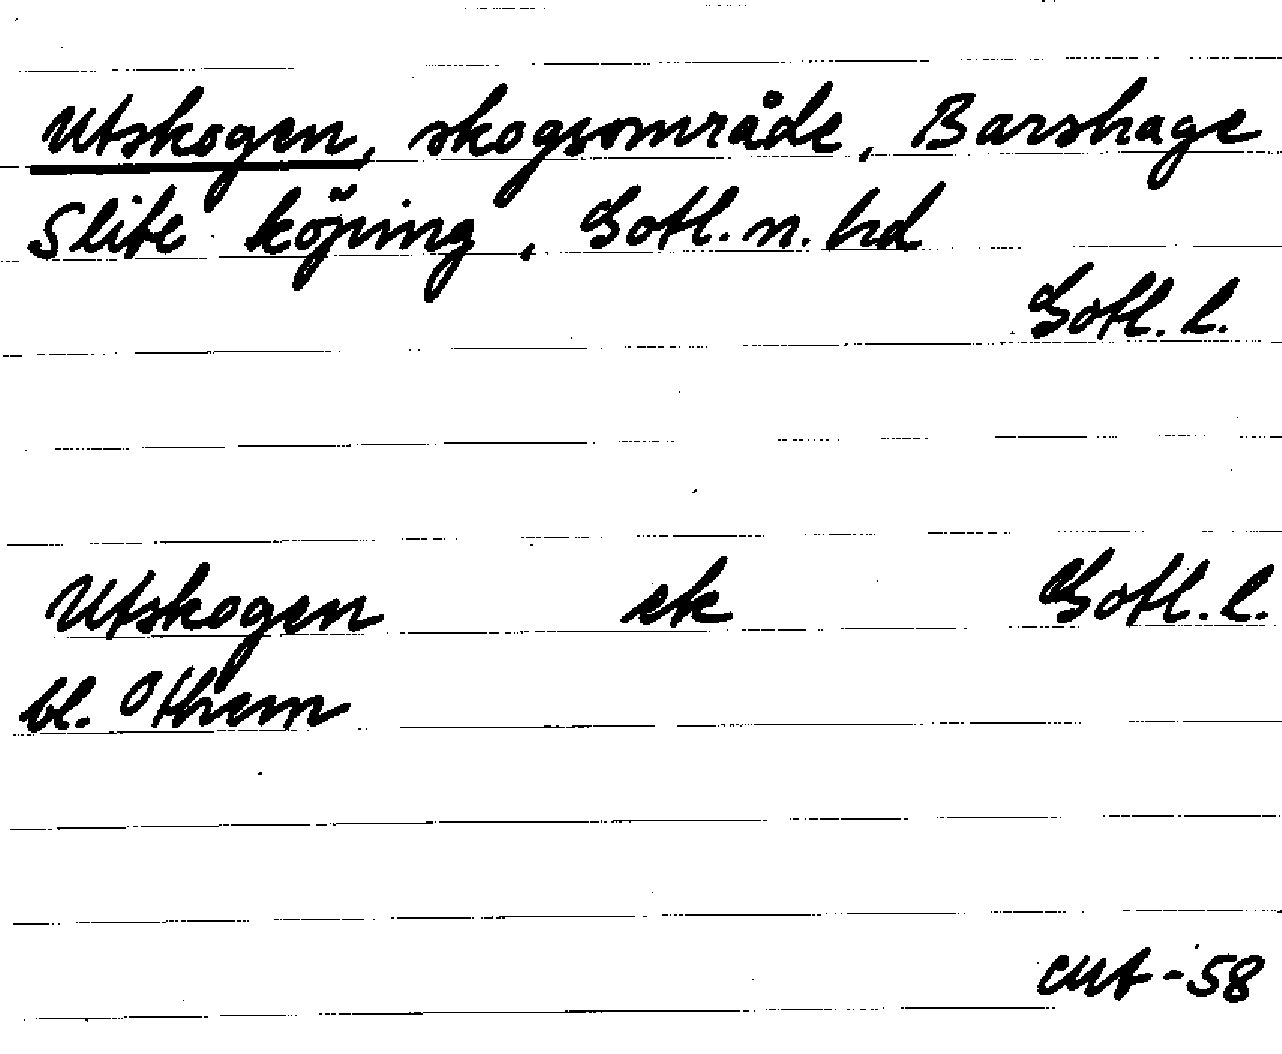 Utskogen, skogsområde, Barshage
Slite köping, Gotl. n. hd
Gotl. l.
Utskogen ek Gotl. l.
bl. Othem
-58